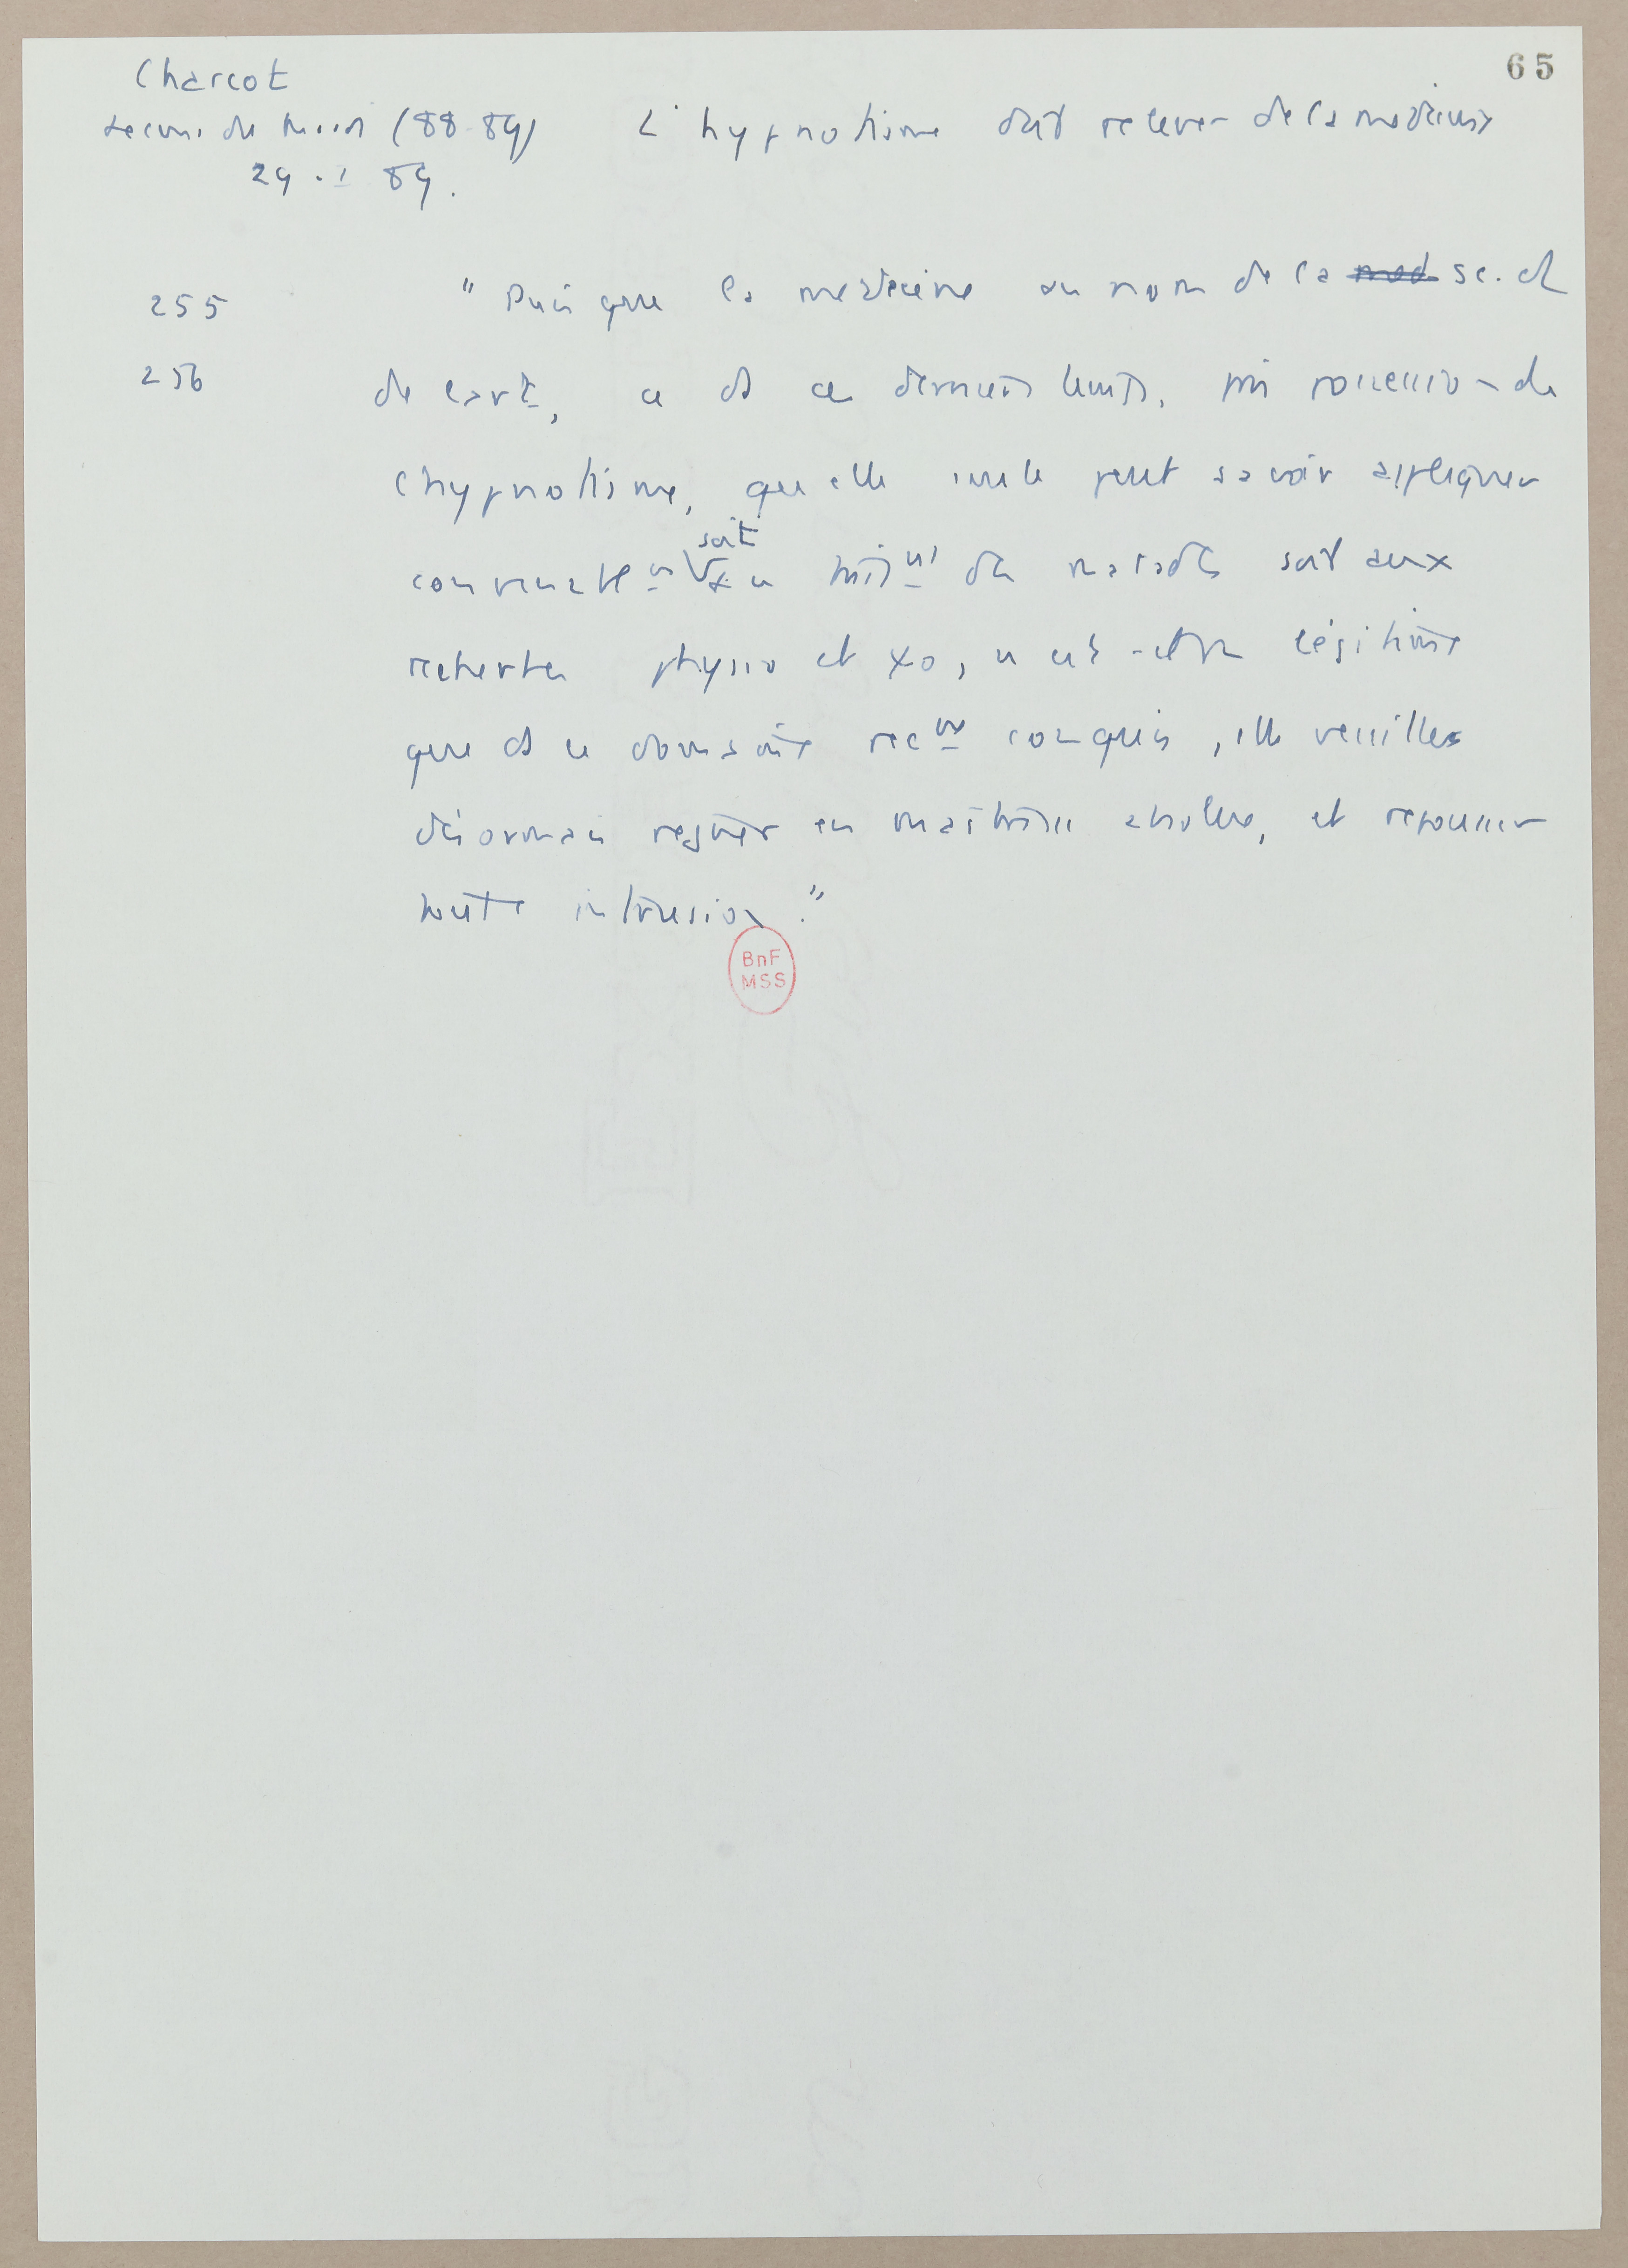 65
Charcot
Lecons du mardi (88-89) L'hypnotisme doit relever de la médecine
29.I 89.
255 "Puisque la médecine au nom de la sc. et
256 de l'art, a ds ces derniers temps, pris possession de
l'hypnotisme, qu'elle seule peut savoir appliquer
convenablemt soit au traitemt des malades soit aux
recherches physio et ψo, n'est-il pas légitime
que ds ce domaine recmt conquis, elle veuille
désormais régner en maîtresse absolue, et repousser
toute intrusion."
BnF
MSS